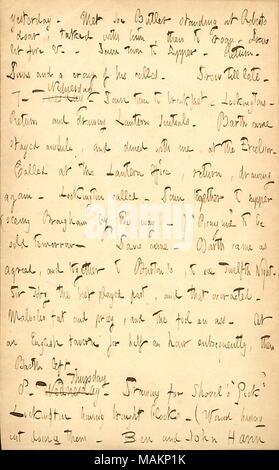 yesterday. Met Joe Butler standing at Roberts
door, talked with him, then to Crayon. Drew
let for V. Down town to Supper. Return.
Davis and a crony of his called. Drew till late.
7. Wednesday. Down town to breakfast. Lockington.
Return and drawing Lantern Initials. Barth came
stayed awhile, and dined with me, at the Excelsior.
Called at the Lantern Office, return, drawing
again. Lockington called. Down together to supper
seeing Brougham by the way. "Picayune" to be
sold tomorrow. Davis came. Barth came as
agreed, and together to Burton's, to see Twelfth Night.
Sir Toby the best played part, and that overacted.
Malvolio fat and prosy, and the fool an ass. At
an English tavern for half an hour subsequently, then
Barth left.
8. Thursday. Drawing for Strong's "Pick"
Lockington having brought Blocks. (Ward having
cut down them. Ben and John Hann
alamy
Image ID: MAKP1K
www.alamy.com